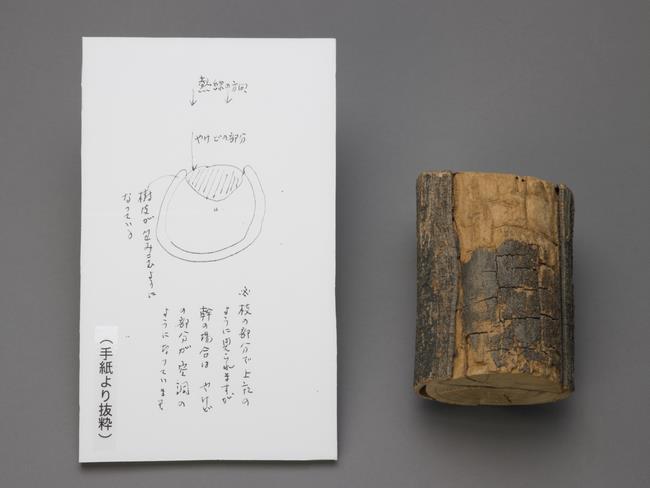 熱線の方向
やけどの部分
樹皮が包みこむように
なっている
※枝の部分で上記の
ように見られますが
幹の場合は やけど
の部分が空洞の
ようになっています
(手紙より抜粋)